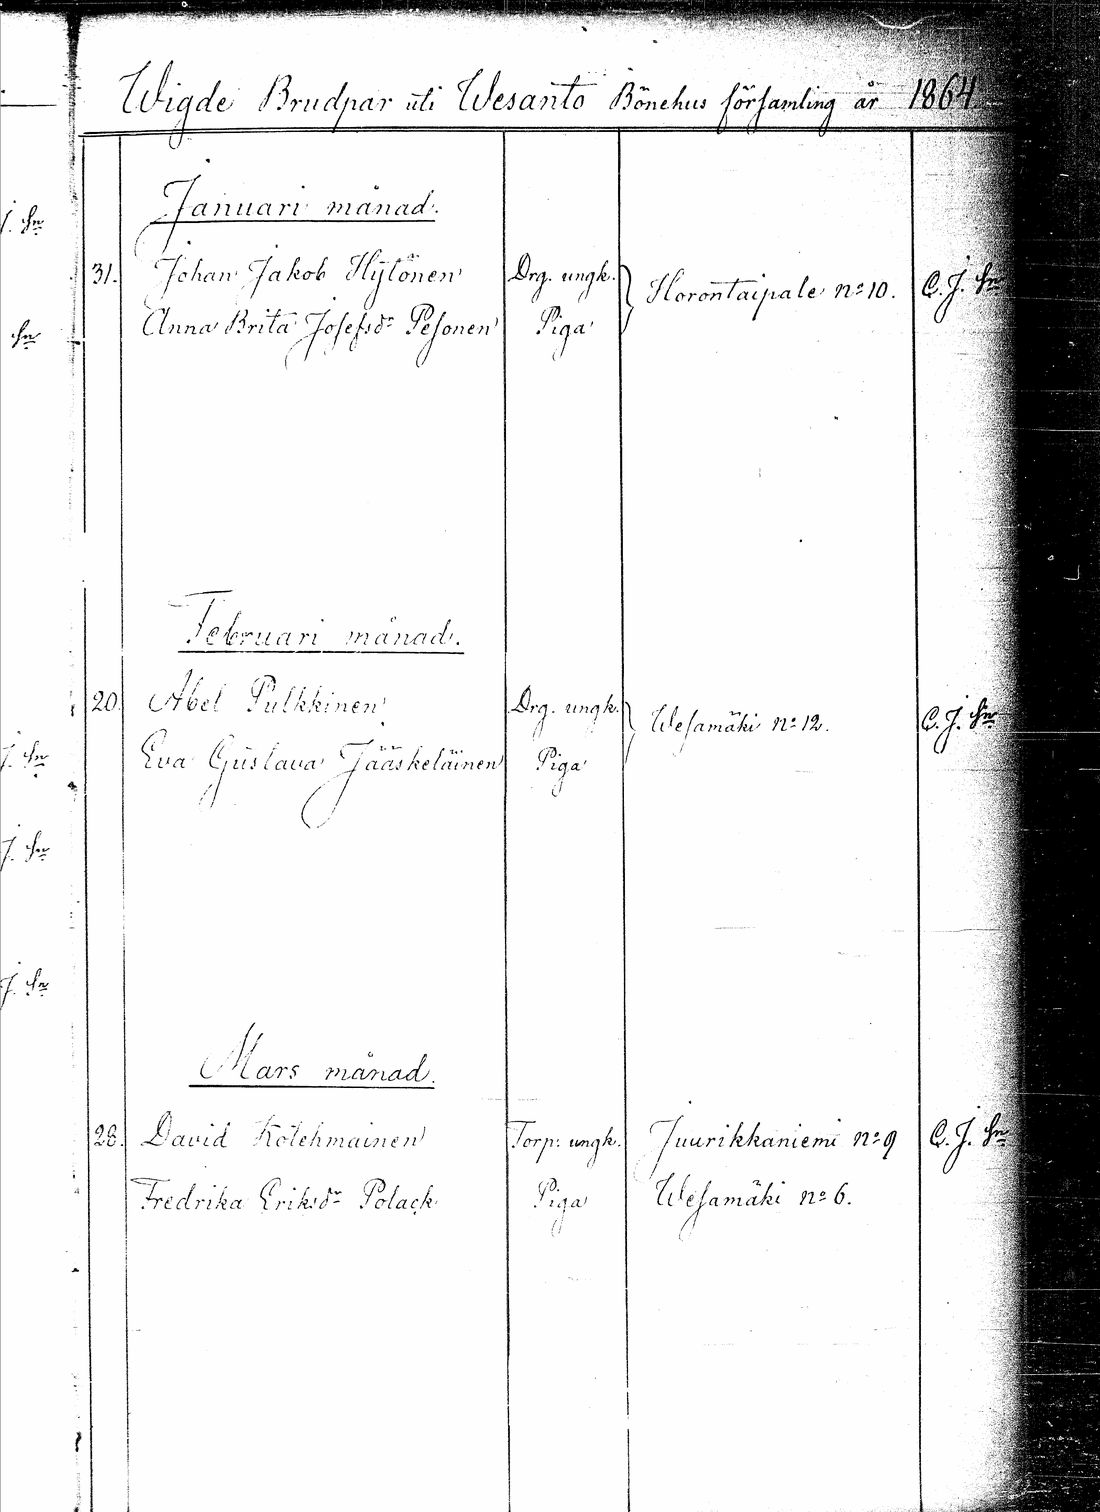 Wigde Brudpar uti Wesanto Bönehus församling år 1864
Januari månad.
31. Johan Jakob Hytönen Drg. ungk. Horontaipale no 10. C. J. Hn
Anna Brita Josefsdr Pesonen Piga
Februari månad.
20. Abel Pulkkinen Drg. ungk. Wesamäki no 12. C. J. Hn
Eva Gustava Jääskeläinen Piga
Mars månad.
28. David Kotehmainen Torp: ungk. Juurikkaniemi no 9 C. J. Hn
Fredrika Eriksdr Polack Piga Wesamäki no 6.